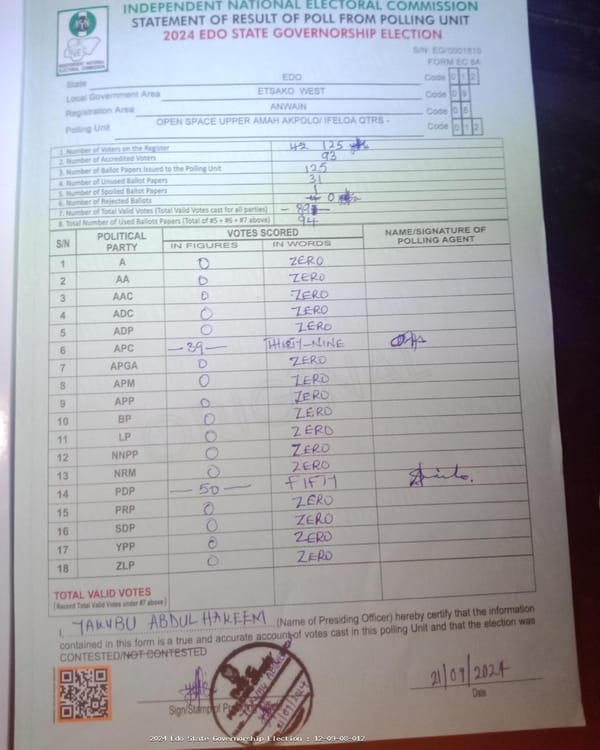 INDEPENDENT NATIONAL ELECTORAL COMMISSION
STATEMENT OF RESULT OF POLL FROM POLLING UNIT
2024 EDO STATE GOVERNORSHIP ELECTION
INDEPENDENT NATIONAL ELECTORAL COMMISSION
S/N: EG/0001810
FORM EC 8A
State EDO Code 0 1 2
Local Government Area ETSAKO WEST Code 0 9
Registration Area ANWAIN Code 0 8
Polling Unit OPEN SPACE UPPER AMAH AKPOLO/ IFELOA QTRS - Code 0 1 2
1. Number of Voters on the Register 125
2. Number of Accredited Voters 93
3. Number of Ballot Papers Issued to the Polling Unit 125
4. Number of Unused Ballot Papers 31
5. Number of Spoiled Ballot Papers 1
6. Number of Rejected Ballots 0
7. Number of Total Valid Votes (Total Valid Votes cast for all parties)
8. Total Number of Used Ballot Papers (Total of #5 + #6 + #7 above) 94
S/N POLITICAL PARTY VOTES SCORED NAME/SIGNATURE OF POLLING AGENT
IN FIGURES IN WORDS
1 A 0 ZERO
2 AA 0 ZERO
3 AAC 0 ZERO
4 ADC 0 ZERO
5 ADP 0 ZERO
6 APC —39— THIRTY-NINE
7 APGA 0 ZERO
8 APM 0 ZERO
9 APP 0 ZERO
10 BP 0 ZERO
11 LP 0 ZERO
12 NNPP 0 ZERO
13 NRM 0 ZERO
14 PDP —50— FIFTY
15 PRP 0 ZERO
16 SDP 0 ZERO
17 YPP 0 ZERO
18 ZLP 0 ZERO
TOTAL VALID VOTES
(Record Total Valid Votes under #7 above)
I, YAKUBU ABDUL HAKEEM (Name of Presiding Officer) hereby certify that the information
contained in this form is a true and accurate account of votes cast in this polling Unit and that the election was
CONTESTED/NOT CONTESTED
21/09/2024
Sign/Stamp of
Date
2024 Edo State Governorship Election : 12-09-08-012